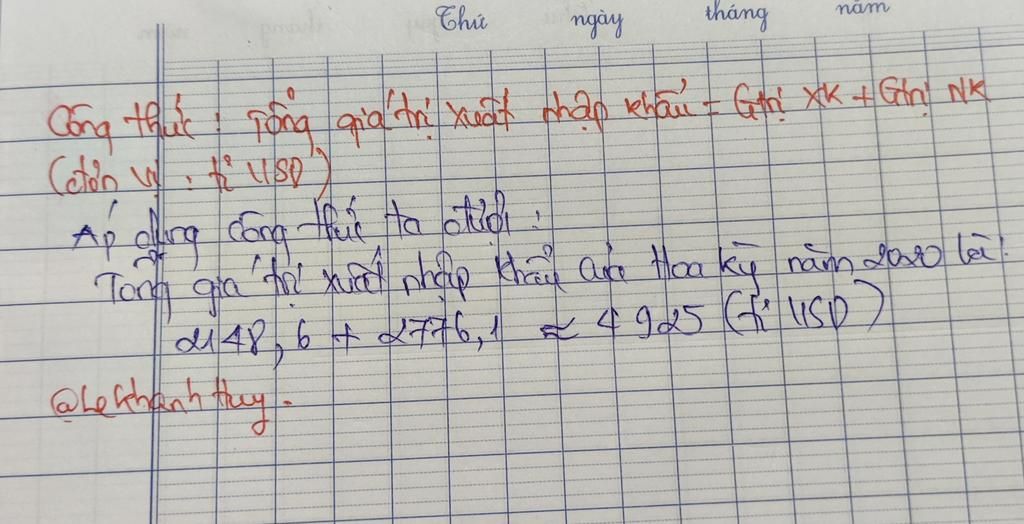 Thứ ngày tháng năm
Công thức : Tổng giá trị xuất nhập khẩu = Gtrị XK + Gtrị NK
(đơn vị : tỉ USD)
Áp dụng công thức ta được :
Tổng giá trị xuất nhập khẩu của Hoa Kỳ năm 2020 là :
2148,6 + 2776,1 ≈ 4 925 (tỉ USD)
@LeKhanhHuy.